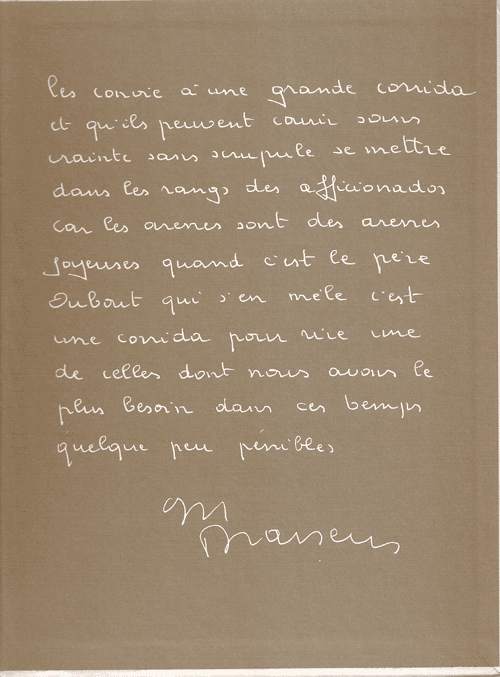 les convie à une grande corrida
et qu'ils peuvent courir sans
crainte sans scrupule se mettre
dans les rangs des afficionados
car les arenes sont des arenes
joyeuses quand c'est le père
Dubout qui s'en mèle c'est
une corrida pour rire une
de celles dont nous avons le
plus besoin dans ces temps
quelque peu pénibles
Brassens